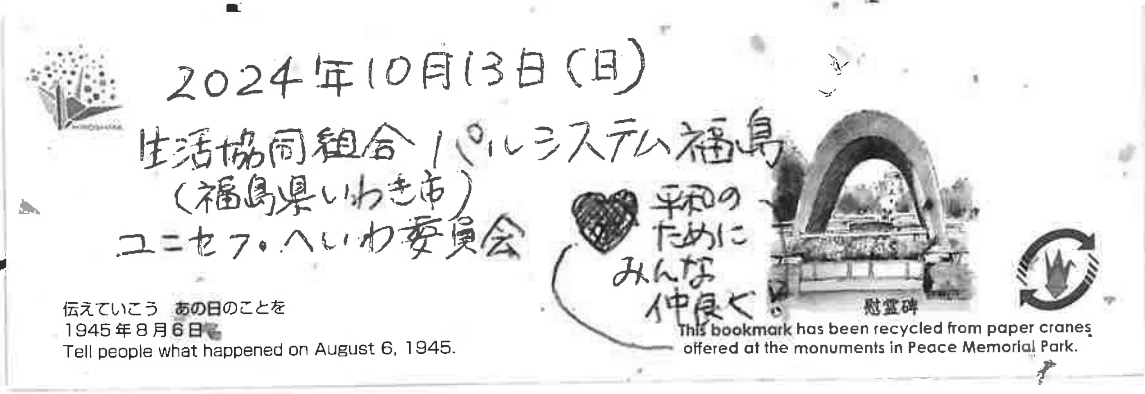 2024年10月13日(日)
生活協同組合 パルシステム福島
(福島県いわき市)
ユニセフ・へいわ委員会
平和の
ために
みんな
仲良く!
HIROSHIMA
慰霊碑
伝えていこう あの日のことを
1945年8月6日
Tell people what happened on August 6, 1945.
This bookmark has been recycled from paper cranes
offered at the monuments in Peace Memorial Park.